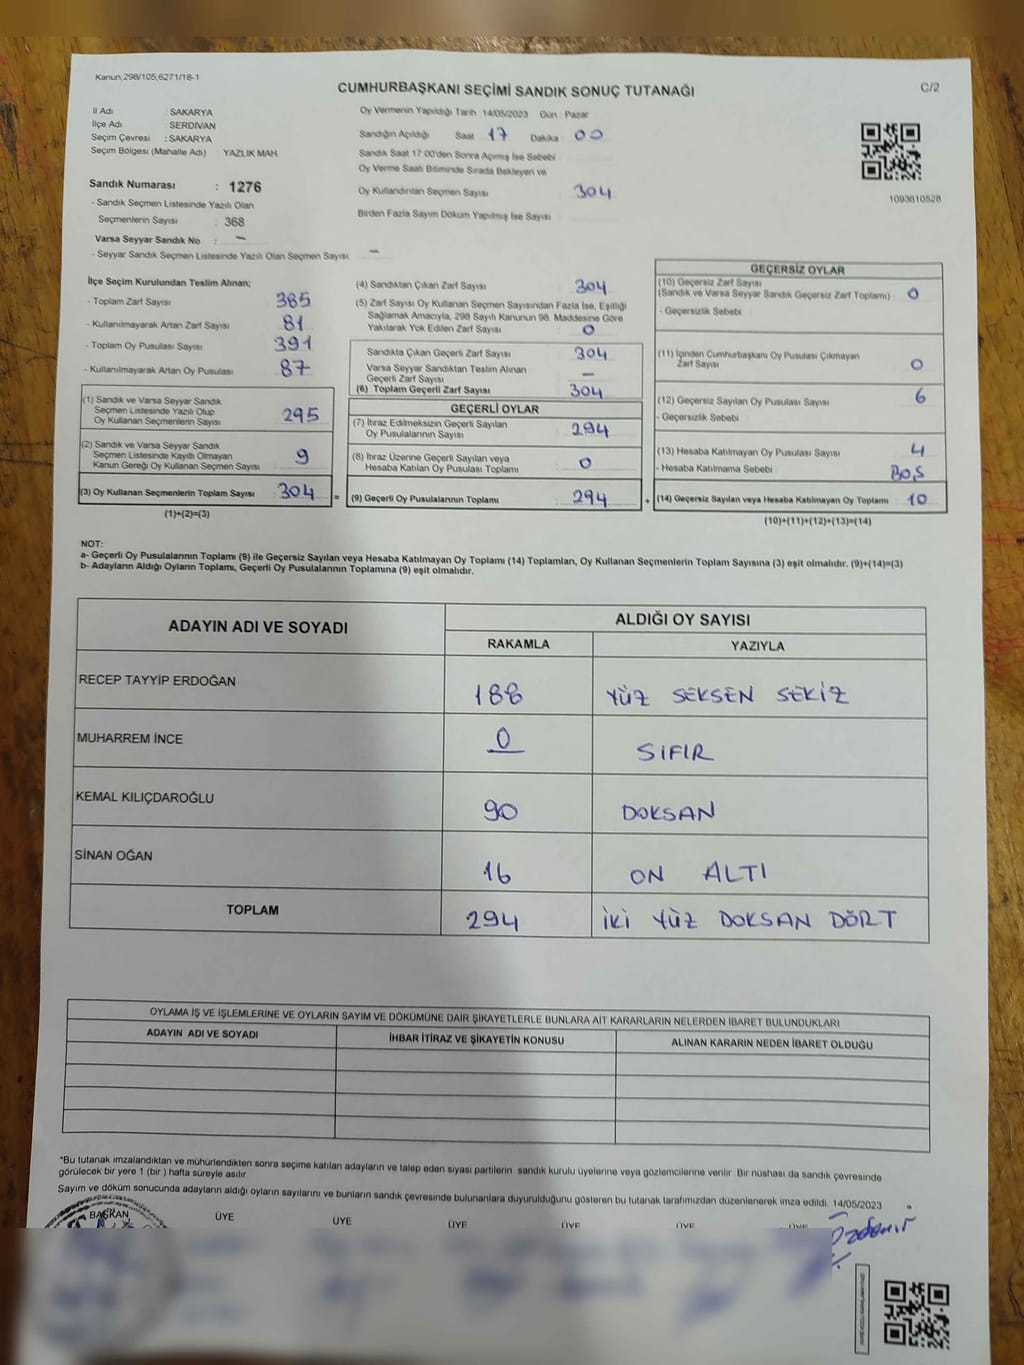 Kanun,298/105,6271/18-1
CUMHURBAŞKANI SEÇİMİ SANDIK SONUÇ TUTANAĞI
C/2
İl Adı : SAKARYA
İlçe Adı : SERDİVAN
Seçim Çevresi : SAKARYA
Seçim Bölgesi (Mahalle Adı) YAZLIK MAH.
Sandık Numarası : 1276
- Sandık Seçmen Listesinde Yazılı Olan
Seçmenlerin Sayısı : 368
Varsa Seyyar Sandık No : -
- Seyyar Sandık Seçmen Listesinde Yazılı Olan Seçmen Sayısı: -
Oy Vermenin Yapıldığı Tarih : 14/05/2023 Gün : Pazar
Sandığın Açıldığı Saat 17 Dakika : 00
Sandık Saat 17:00'den Sonra Açılmış İse Sebebi
Oy Verme Saati Bitiminde Sırada Bekleyen ve
Oy Kullandırılan Seçmen Sayısı 304
Birden Fazla Sayım Döküm Yapılmış İse Sayısı
1093610528
İlçe Seçim Kurulundan Teslim Alınan;
- Toplam Zarf Sayısı 385
- Kullanılmayarak Artan Zarf Sayısı 81
- Toplam Oy Pusulası Sayısı 391
- Kullanılmayarak Artan Oy Pusulası 87
(1) Sandık ve Varsa Seyyar Sandık
Seçmen Listesinde Yazılı Olup
Oy Kullanan Seçmenlerin Sayısı 295
(2) Sandık ve Varsa Seyyar Sandık
Seçmen Listesinde Kayıtlı Olmayan
Kanun Gereği Oy Kullanan Seçmen Sayısı 9
(3) Oy Kullanan Seçmenlerin Toplam Sayısı 304 =
(1)+(2)=(3)
(4) Sandıktan Çıkan Zarf Sayısı 304
(5) Zarf Sayısı Oy Kullanan Seçmen Sayısından Fazla İse, Eşitliği
Sağlamak Amacıyla, 298 Sayılı Kanunun 98. Maddesine Göre
Yakılarak Yok Edilen Zarf Sayısı 0
Sandıkta Çıkan Geçerli Zarf Sayısı 304
Varsa Seyyar Sandıktan Teslim Alınan
Geçerli Zarf Sayısı -
(6) Toplam Geçerli Zarf Sayısı 304
GEÇERLİ OYLAR
(7) İtiraz Edilmeksizin Geçerli Sayılan
Oy Pusulalarının Sayısı 294
(8) İtiraz Üzerine Geçerli Sayılan veya
Hesaba Katılan Oy Pusulası Toplamı 0
(9) Geçerli Oy Pusulalarının Toplamı 294 +
GEÇERSİZ OYLAR
(10) Geçersiz Zarf Sayısı
(Sandık ve Varsa Seyyar Sandık Geçersiz Zarf Toplamı) 0
- Geçersizlik Sebebi
(11) İçinden Cumhurbaşkanı Oy Pusulası Çıkmayan
Zarf Sayısı 0
(12) Geçersiz Sayılan Oy Pusulası Sayısı 6
- Geçersizlik Sebebi
(13) Hesaba Katılmayan Oy Pusulası Sayısı 4
- Hesaba Katılmama Sebebi BOŞ
(14) Geçersiz Sayılan veya Hesaba Katılmayan Oy Toplamı 10
(10)+(11)+(12)+(13)=(14)
NOT:
a- Geçerli Oy Pusulalarının Toplamı (9) ile Geçersiz Sayılan veya Hesaba Katılmayan Oy Toplamı (14) Toplamları, Oy Kullanan Seçmenlerin Toplam Sayısına (3) eşit olmalıdır. (9)+(14)=(3)
b- Adayların Aldığı Oyların Toplamı, Geçerli Oy Pusulalarının Toplamına (9) eşit olmalıdır.
ADAYIN ADI VE SOYADI ALDIĞI OY SAYISI
RAKAMLA YAZIYLA
RECEP TAYYİP ERDOĞAN 188 YÜZ SEKSEN SEKİZ
MUHARREM İNCE 0 SIFIR
KEMAL KILIÇDAROĞLU 90 DOKSAN
SİNAN OĞAN 16 ON ALTI
TOPLAM 294 İKİ YÜZ DOKSAN DÖRT
OYLAMA İŞ VE İŞLEMLERİNE VE OYLARIN SAYIM VE DÖKÜMÜNE DAİR ŞİKAYETLERLE BUNLARA AİT KARARLARIN NELERDEN İBARET BULUNDUKLARI
ADAYIN ADI VE SOYADI İHBAR İTİRAZ VE ŞİKAYETİN KONUSU ALINAN KARARIN NEDEN İBARET OLDUĞU
*Bu tutanak imzalandıktan ve mühürlendikten sonra seçime katılan adayların ve talep eden siyasi partilerin sandık kurulu üyelerine veya gözlemcilerine verilir. Bir nüshası da sandık çevresinde
görülecek bir yere 1 (bir ) hafta süreyle asılır.
Sayım ve döküm sonucunda adayların aldığı oyların sayılarını ve bunların sandık çevresinde bulunanlara duyurulduğunu gösteren bu tutanak tarafımızdan düzenlenerek imza edildi. 14/05/2023
BAŞKAN ÜYE ÜYE ÜYE ÜYE ÜYE ÜYE